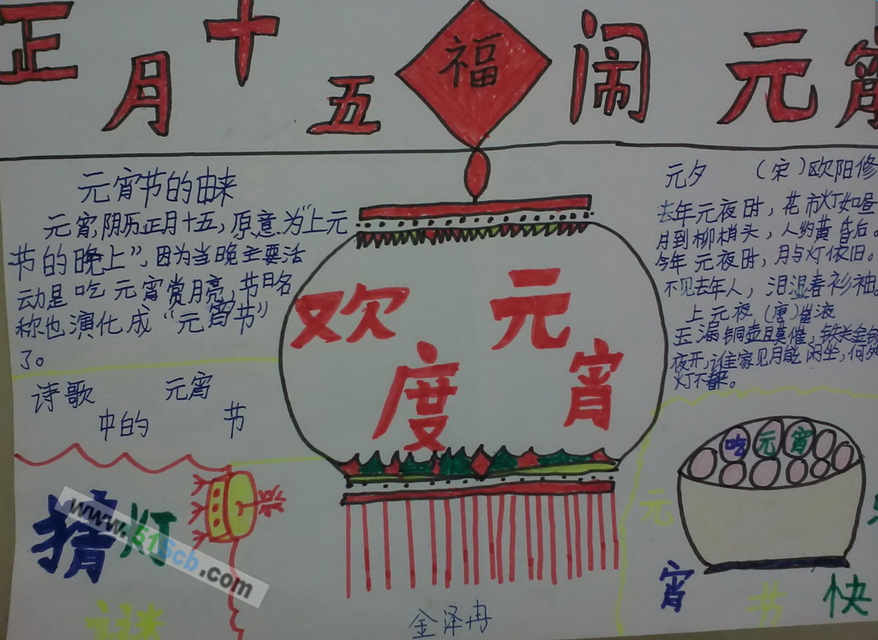 正月十五
福
闹元宵
元宵节的由来
元宵,阴历正月十五,原意为"上元
节的晚上",因为当晚主要活
动是吃元宵赏月亮,节日名
称也演化成"元宵节"
了。
诗歌
中的
元宵
节
猜灯
谜
欢度
元宵
元夕 (宋)欧阳修
去年元夜时,花市灯如昼
月到柳梢头,人约黄昏后。
今年元夜时,月与灯依旧。
不见去年人,泪湿春衫袖。
上元夜 (唐)崔液
玉漏铜壶且莫催,铁关金锁
夜开,谁家见月能闲坐,何处
灯不看来。
吃元宵
元
宵
节
快
金泽冉
www.51Scb.com